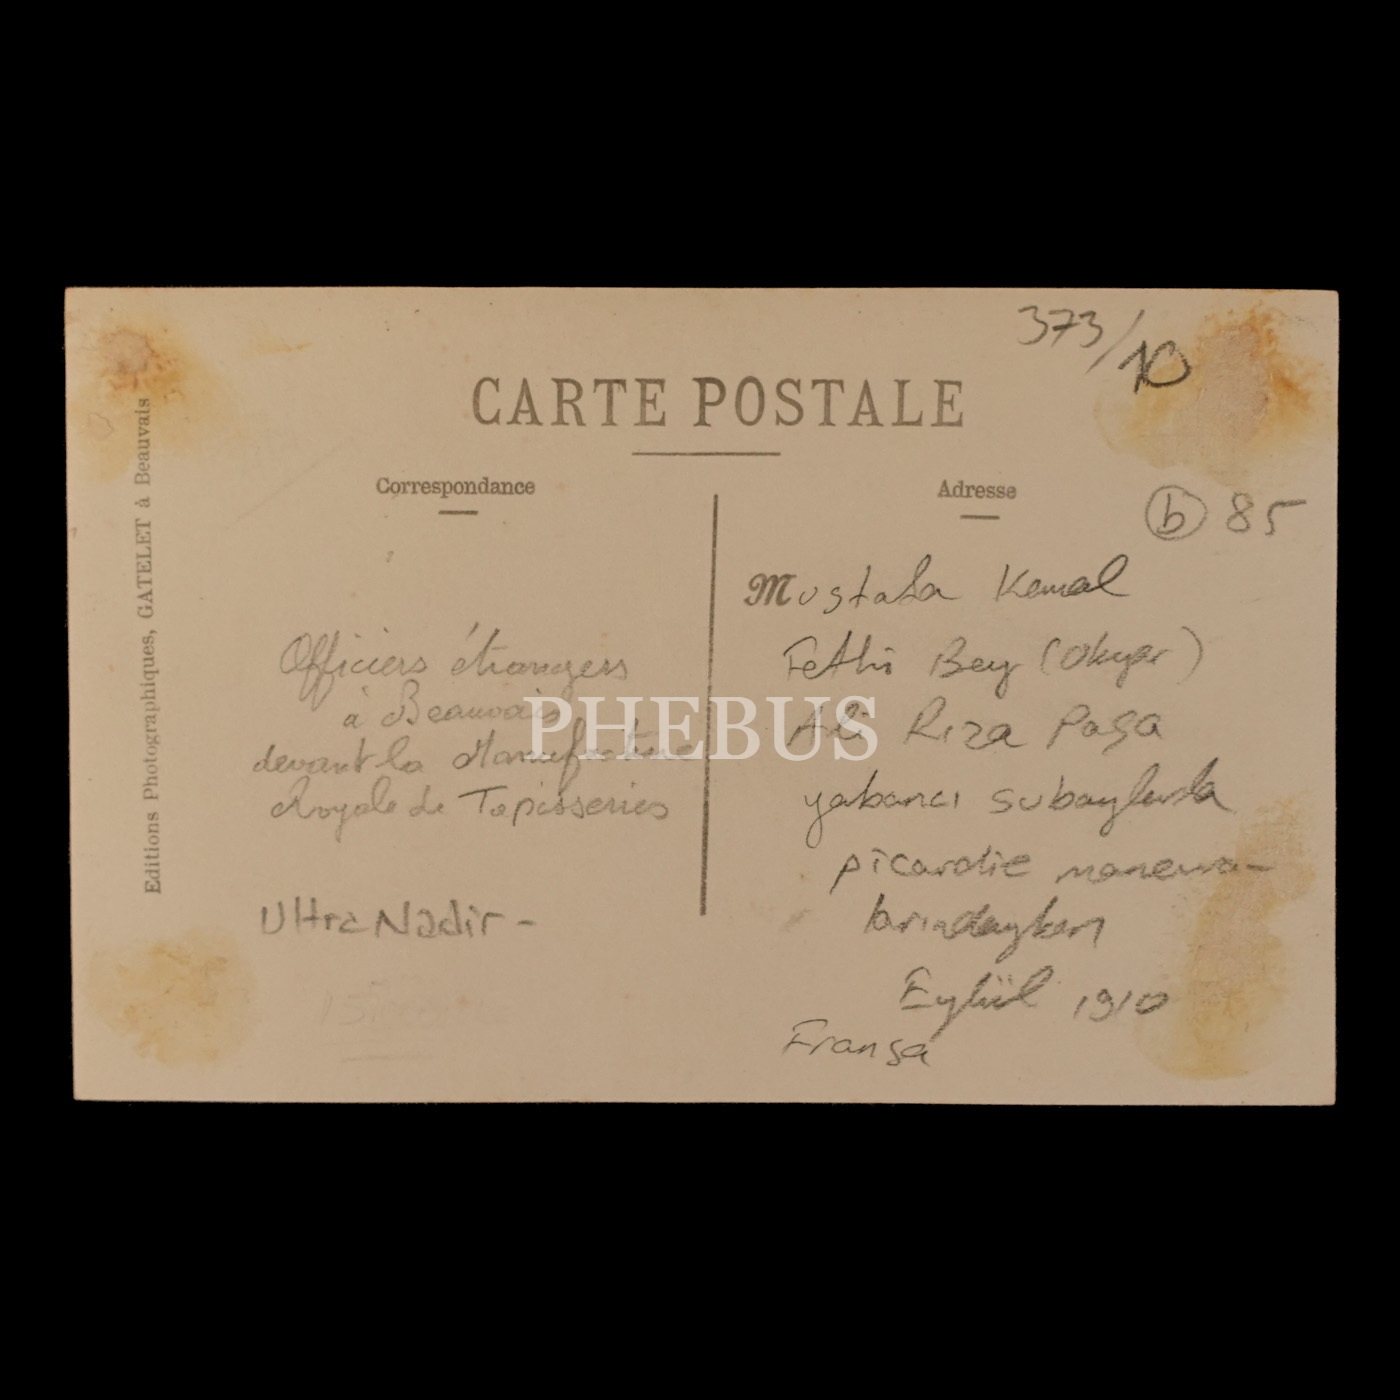 373/10
CARTE POSTALE
Correspondance
Adresse
b 85
Editions Photographiques, GATELET à Beauvais
Officiers étrangers
à Beauvais
devant la Manufacture
Royale de Tapisseries
Ultra Nadir -
Mustafa Kemal
Fethi Bey (Okyar)
Ali Rıza Paşa
yabancı subaylarla
picardie manevra-
larındayken
Eylül 1910
Fransa
PHEBUS